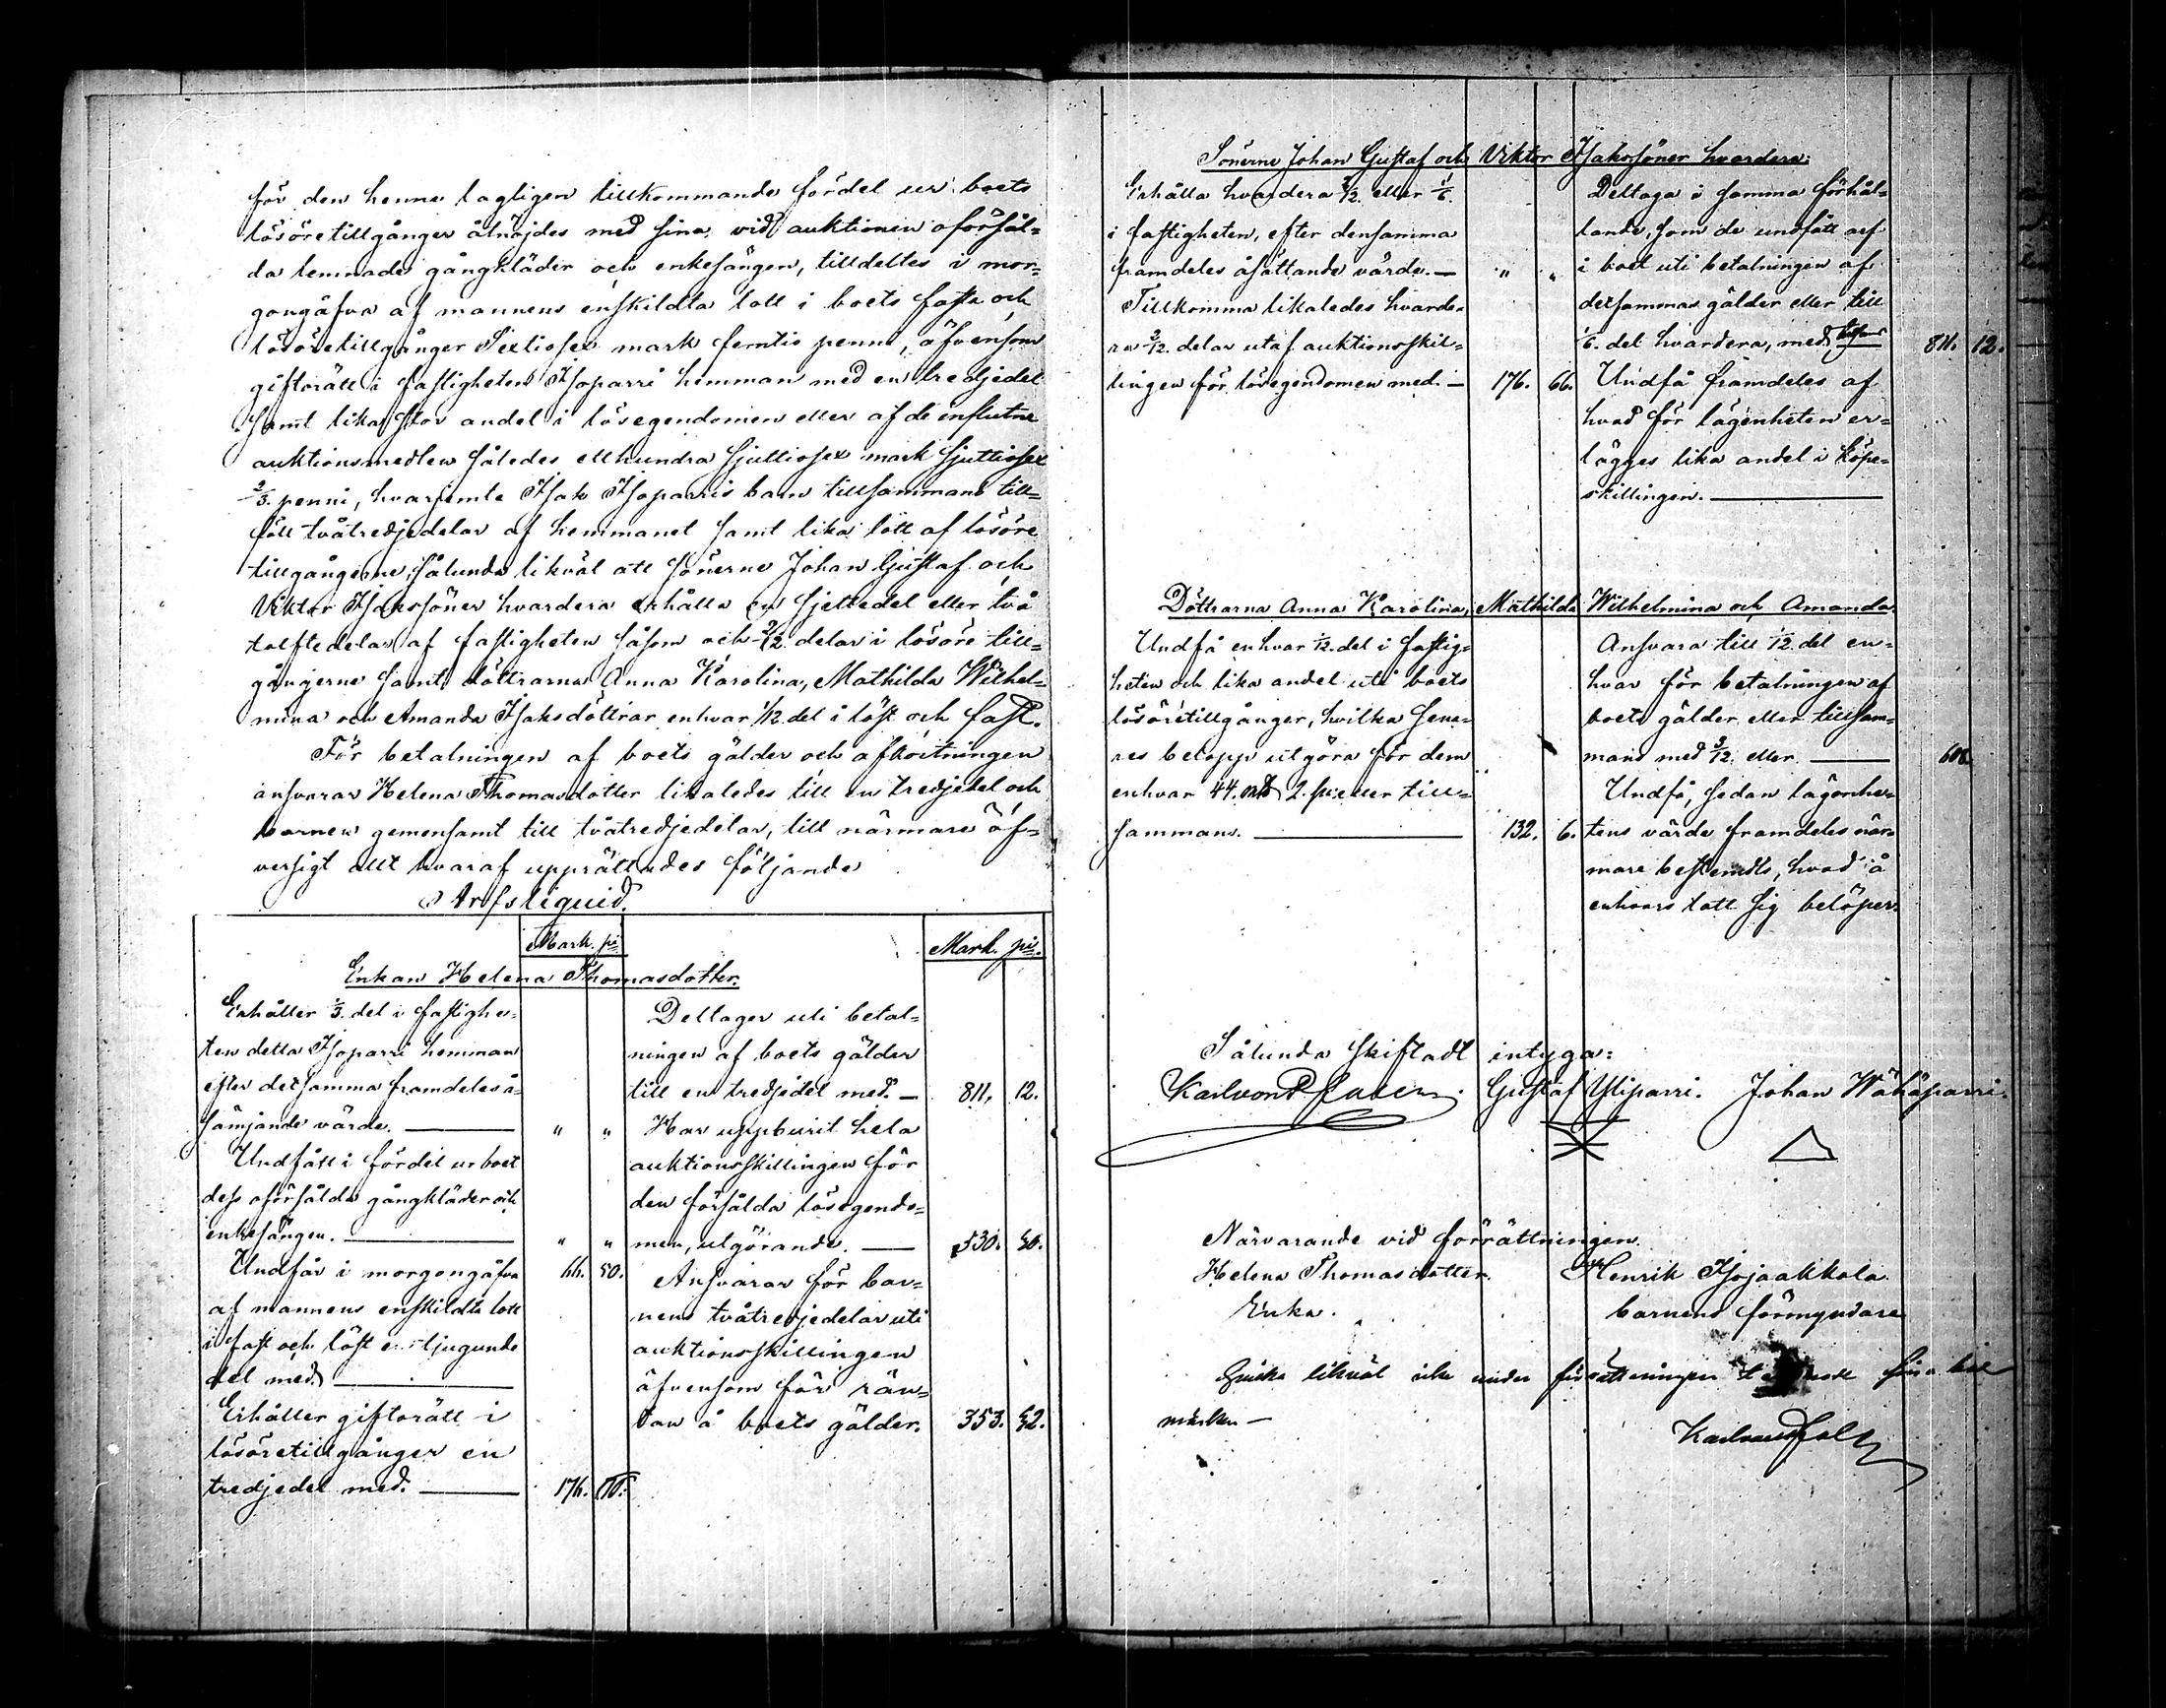 för den henne lagligen tillkommande fördel ur boets
lösöretillgångar åtnöjdes med sina vid auktionen oförsål-
da lemnade gångkläder och enkesängen, tilldeltes i mor-
gongåfva af mannens enskildta lott i boets fasta och
lösöretillgångar Sextiosex mark femtio penni, äfvensom
giftorätt i fastigheten Isoparri hemman med en tredjedel
samt lika stor andel i lösegendomen eller af de influtne
auktionsmedlen således etthundra sjuttiosex mark sjuttiosex
2/3. penni, hvarjemte Isak Isoparris barn tillsammans till-
föll tvåtredjedelar af hemmanet samt lika lott af lösöre
tillgångerne, sålunda likväl att sönerne Johan Gustaf och
Viktor Isakssöner hvardera erhålla en sjettedel eller två
tolftedelar af fastigheten såsom och 2/12. delar i lösöre till-
gångerne samt döttrarna Anna Karolina, Mathilda Wilhel-
mina och Amanda Isaksdöttrar enhvar 1/12 del i löst och fast.
För betalningen af boets gälder och afkortningen
ansvarar Helena Thomasdotter likaledes till en tredjedel och
barnen gemensamt till tvåtredjedelar, till närmare öf-
versigt allt hvaraf upprättades följande
Arfsliquid.
Mark. pi
Mark. pi.
Enkan Helena Thomasdotter.
Erhåller 1/3. del i fastighe-
ten detta Isoparri hemman
efter detsamma framdeles å-
sämjande värde. — " "
Undfått i fördel ur boet
dess oförsålda gångkläder och
enkesängen. — " "
Undfår i morgongåfva 66. 50.
af mannens enskildta lott
i fast och löst en tjugunde
del med —
Erhåller giftorätt i
lösöretillgångar en
tredjedel med. — 176.
Deltager uti betal-
ningen af boets gälder
till en tredjedel med. — 811. 12.
Har uppburit hela
auktionsskillingen för
den försålda lösegendo-
men, utgörande. — 530.
Ansvarar för bar-
nens tvåtredjedelar uti
auktionsskillingen
äfvensom för rän-
tan å boets gälder. 353.
Sönerne Johan Gustaf och Viktor Isakssöner hvardera:
Erhålla hvardera 2/12. eller 1/6.
i fastigheten, efter densamma
framdeles åsättande värde. — " "
Tillkomma likaledes hvarde-
ra 2/12. delar utaf auktionsskil-
lingen för lösegendomen med. — 176. 66.
Deltaga i samma förhål-
lande, som de undfått arf
i boet uti betalningen af
detsammas gälder eller till
1/6. del hvardera, med 811. 12.
Undfå framdeles af
hvad för lägenheten er-
lägges lika andel i köpe-
skillingen. —
Döttrarna Anna Karolina, Mathilda Wilhelmina och Amanda.
Undfå enhvar 1/12. del i fastig-
heten och lika andel uti boets
lösöretillgångar, hvilka sena-
res belopp utgöra för dem
enhvar 44. mk 2. pi: eller till-
sammans. — 132. 6.
Ansvara till 1/12. del en-
hvar för betalningen af
boets gälder eller tillsam-
mans med 3/12. eller — 608.
Undfå, sedan lägenhe-
tens värde framdeles när-
mare bestemdts, hvad å
enhvars lott sig belöper.
Sålunda skiftadt intyga:
Karl von Gustaf Yliparri. Johan Wähäparri.
Närvarande vid förrättningen.
Helena Thomasdotter. Henrik Isojaakkola
Enka. barnens förmyndare
likväl icke under förrättningen sina bo
märken —
Karl von